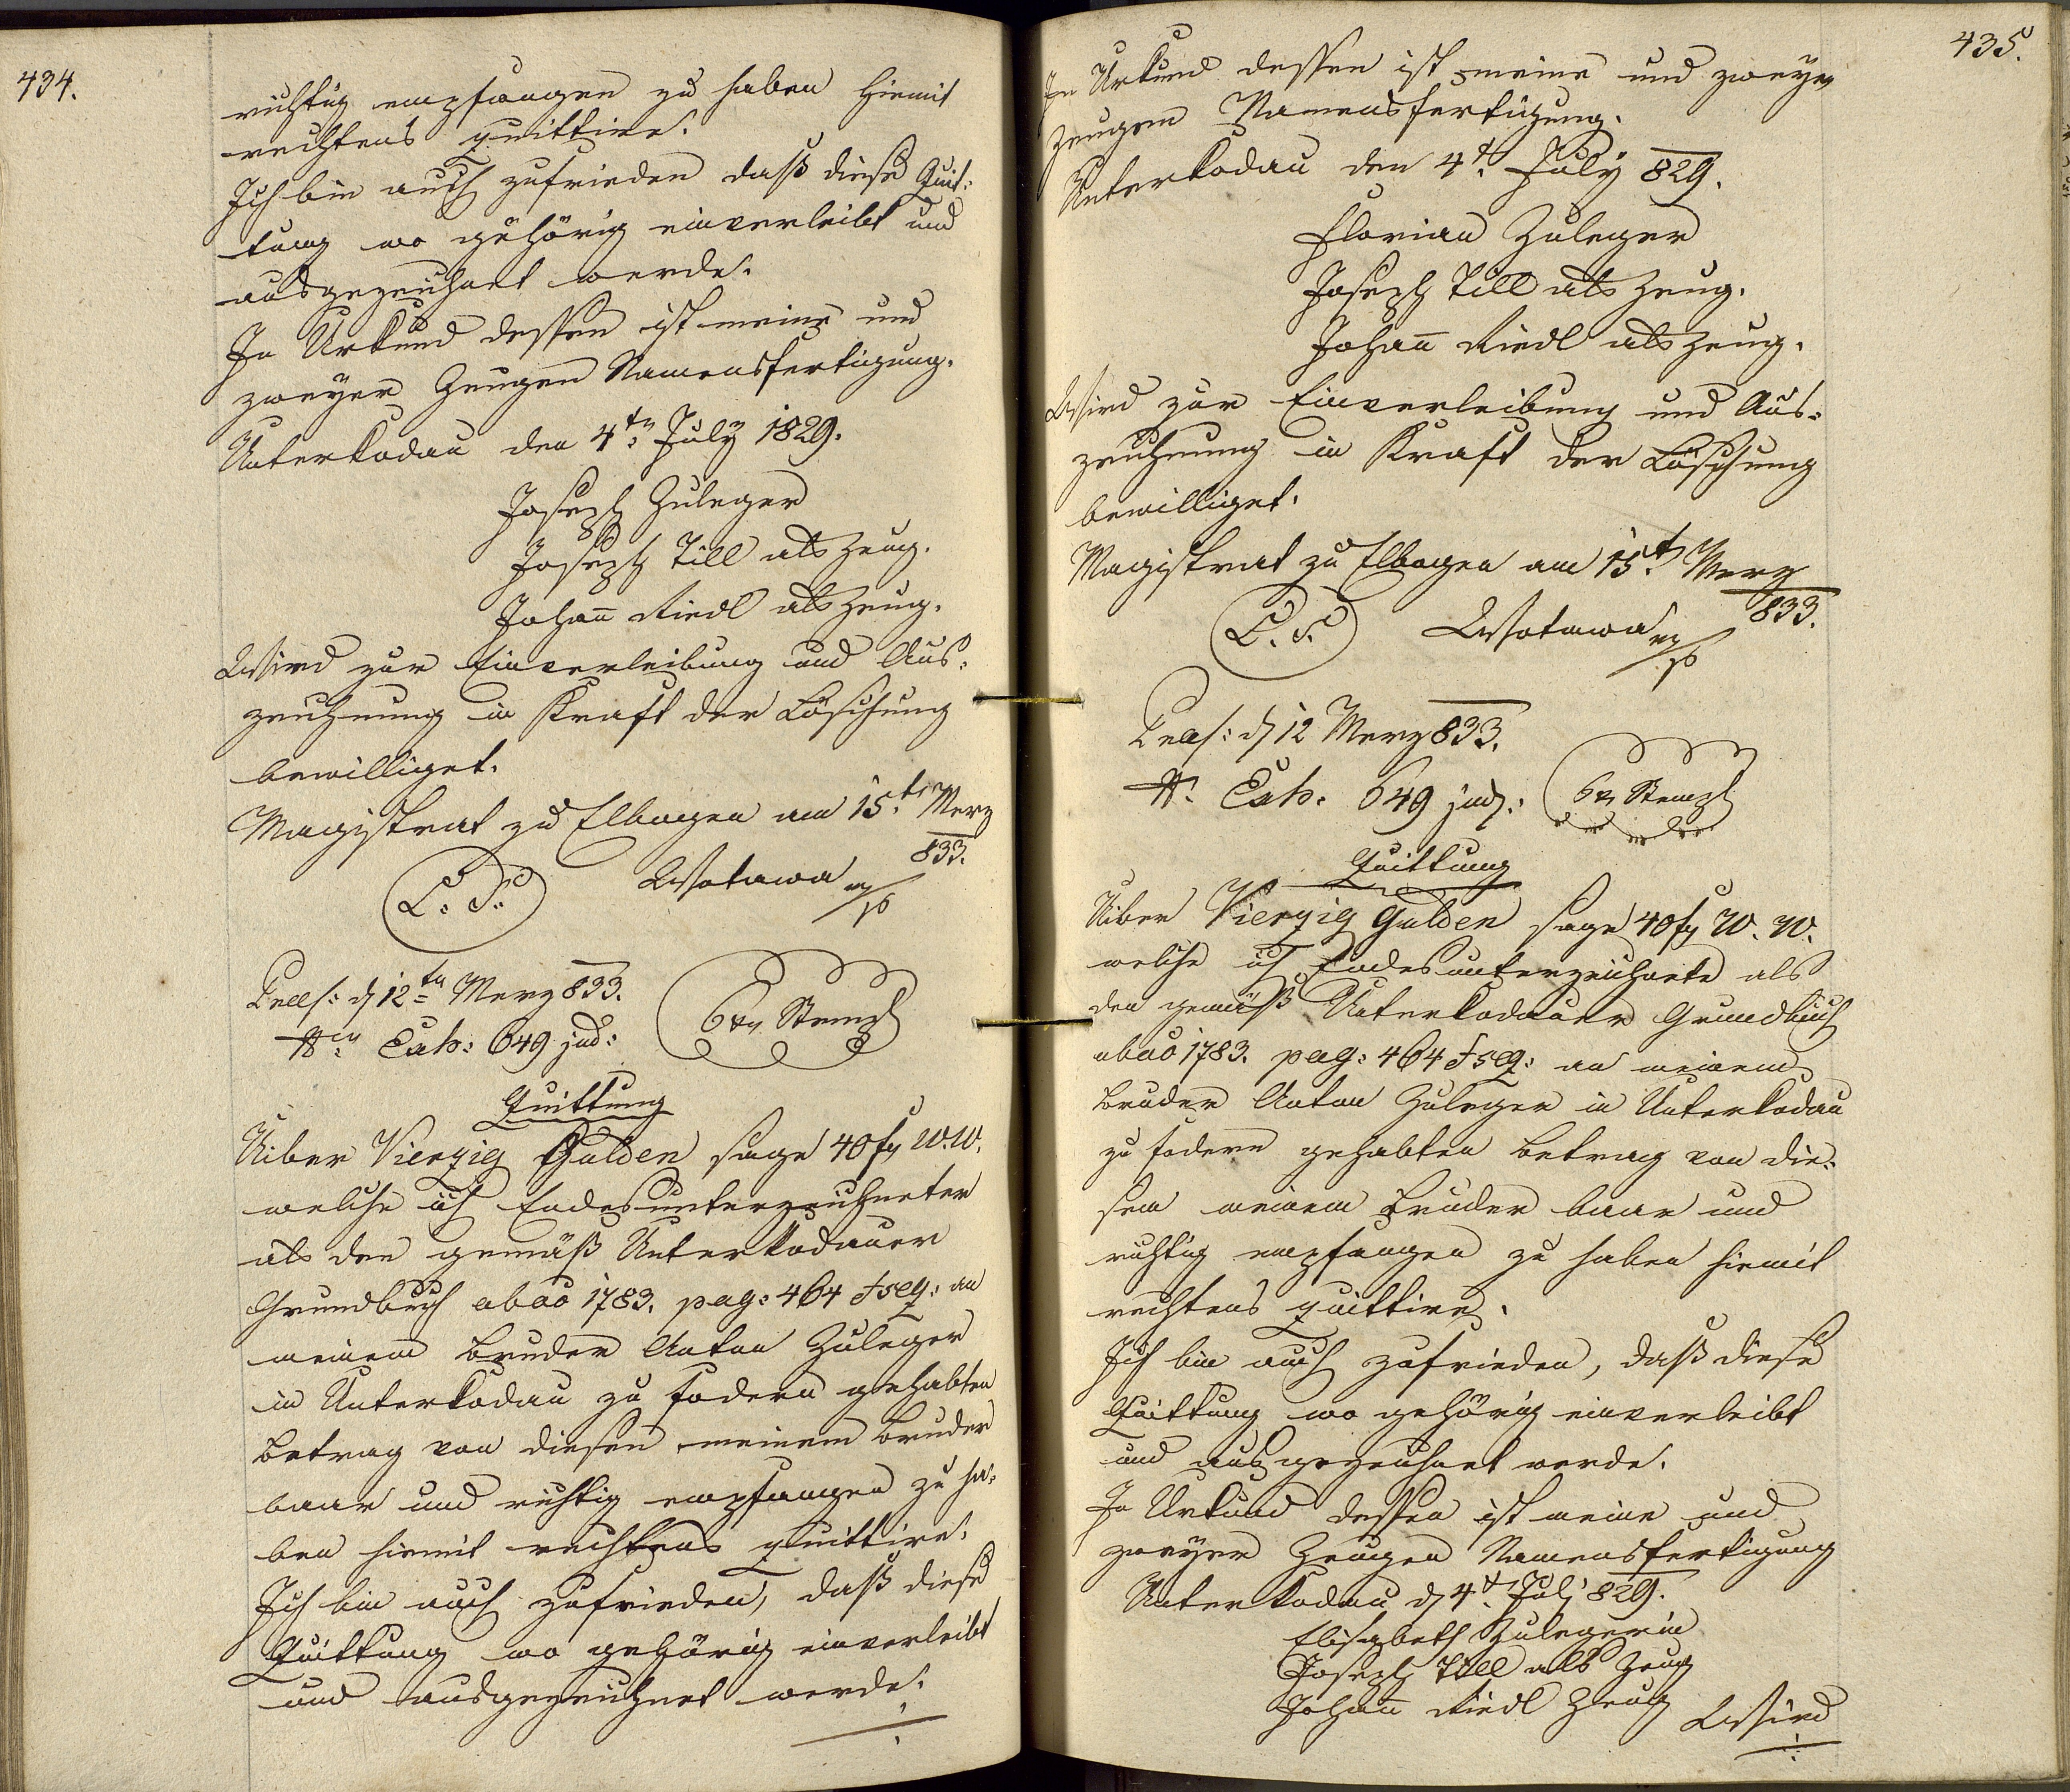 434.
richtig empfangen zu haben hiemit
rechtens quittire.
Ich bin auch zufrieden daß diese Quit-
tung wo gehörig einverleibt und
ausgezeichnet werde.
In Urkund dessen ist meine und
zweyer Zeugen Namensfertigung.
Unterkodau den 4tn July 1829.
Joseph Zuleger
Joseph Till als Zeug.
Johan̄ Riedl als Zeug.
Wird zur Einverleibung und Aus-
zeichnung in Kraft der Löschung
bewilliget.
Magistrat zu Elbogen am 15t Merz
833.
L. S. Wotawa mp
Praes: d 12tn Merz 833.
Nr. Exh: 649 jud:
6 xr Stempl
Quittung
Uiber Vierzig Gulden sage 40 fr W.W.
welche ich Endesunterzeichneter
als den gemäß Unterkodauer
Grundbuch ab ao 1783. pag: 464 & seq: an
meinem Bruder Anton Zuleger
in Unterkodau zu fodern gehabten
Betrag von diesen meinem Bruder
baar und richtig empfangen zu ha-
ben hiemit rechtens quittire.
Ich bin auch zufrieden, daß diese
Quittung wo gehörig einverleibt
und ausgezeichnet werde.
435.
In Urkund dessen ist meine und zweyer
Zeugen Namensfertigung.
Unterkodau den 4t July 829.
Florian Zuleger
Joseph Till als Zeug.
Johan̄ Riedl als Zeug.
Wird zur Einverleibung und Aus-
zeichnung in Kraft der Löschung
bewilliget.
Magistrat zu Elbogen am 15t Merz
833.
L. S. Wotawa mp
Praes: d 12 Merz 833.
Nr. Exh: 649 jud:
6 xr Stempl
Quittung
Uiber Vierzig Gulden sage 40 fr W. W.
welche ich Endesunterzeichnete als
den gemäß Unterkodauer Grundbuch
ab ao 1783. pag: 464 & seq: an meinem
Bruder Anton Zuleger in Unterkodau
zu fodern gehabten Betrag von die-
sem meinem Bruder baar und
richtig empfangen zu haben hiemit
rechtens quittire.
Ich bin auch zufrieden, daß diese
Quittung wo gehörig einverleibt
und ausgezeichnet werde.
In Urkund dessen ist meine und
zweyer Zeugen Namensfertigung
Unterkodau d 4t July 829.
Elisabeth Zulegerin
Joseph Till als Zeug
Johan̄ Riedl Zeug
Wird